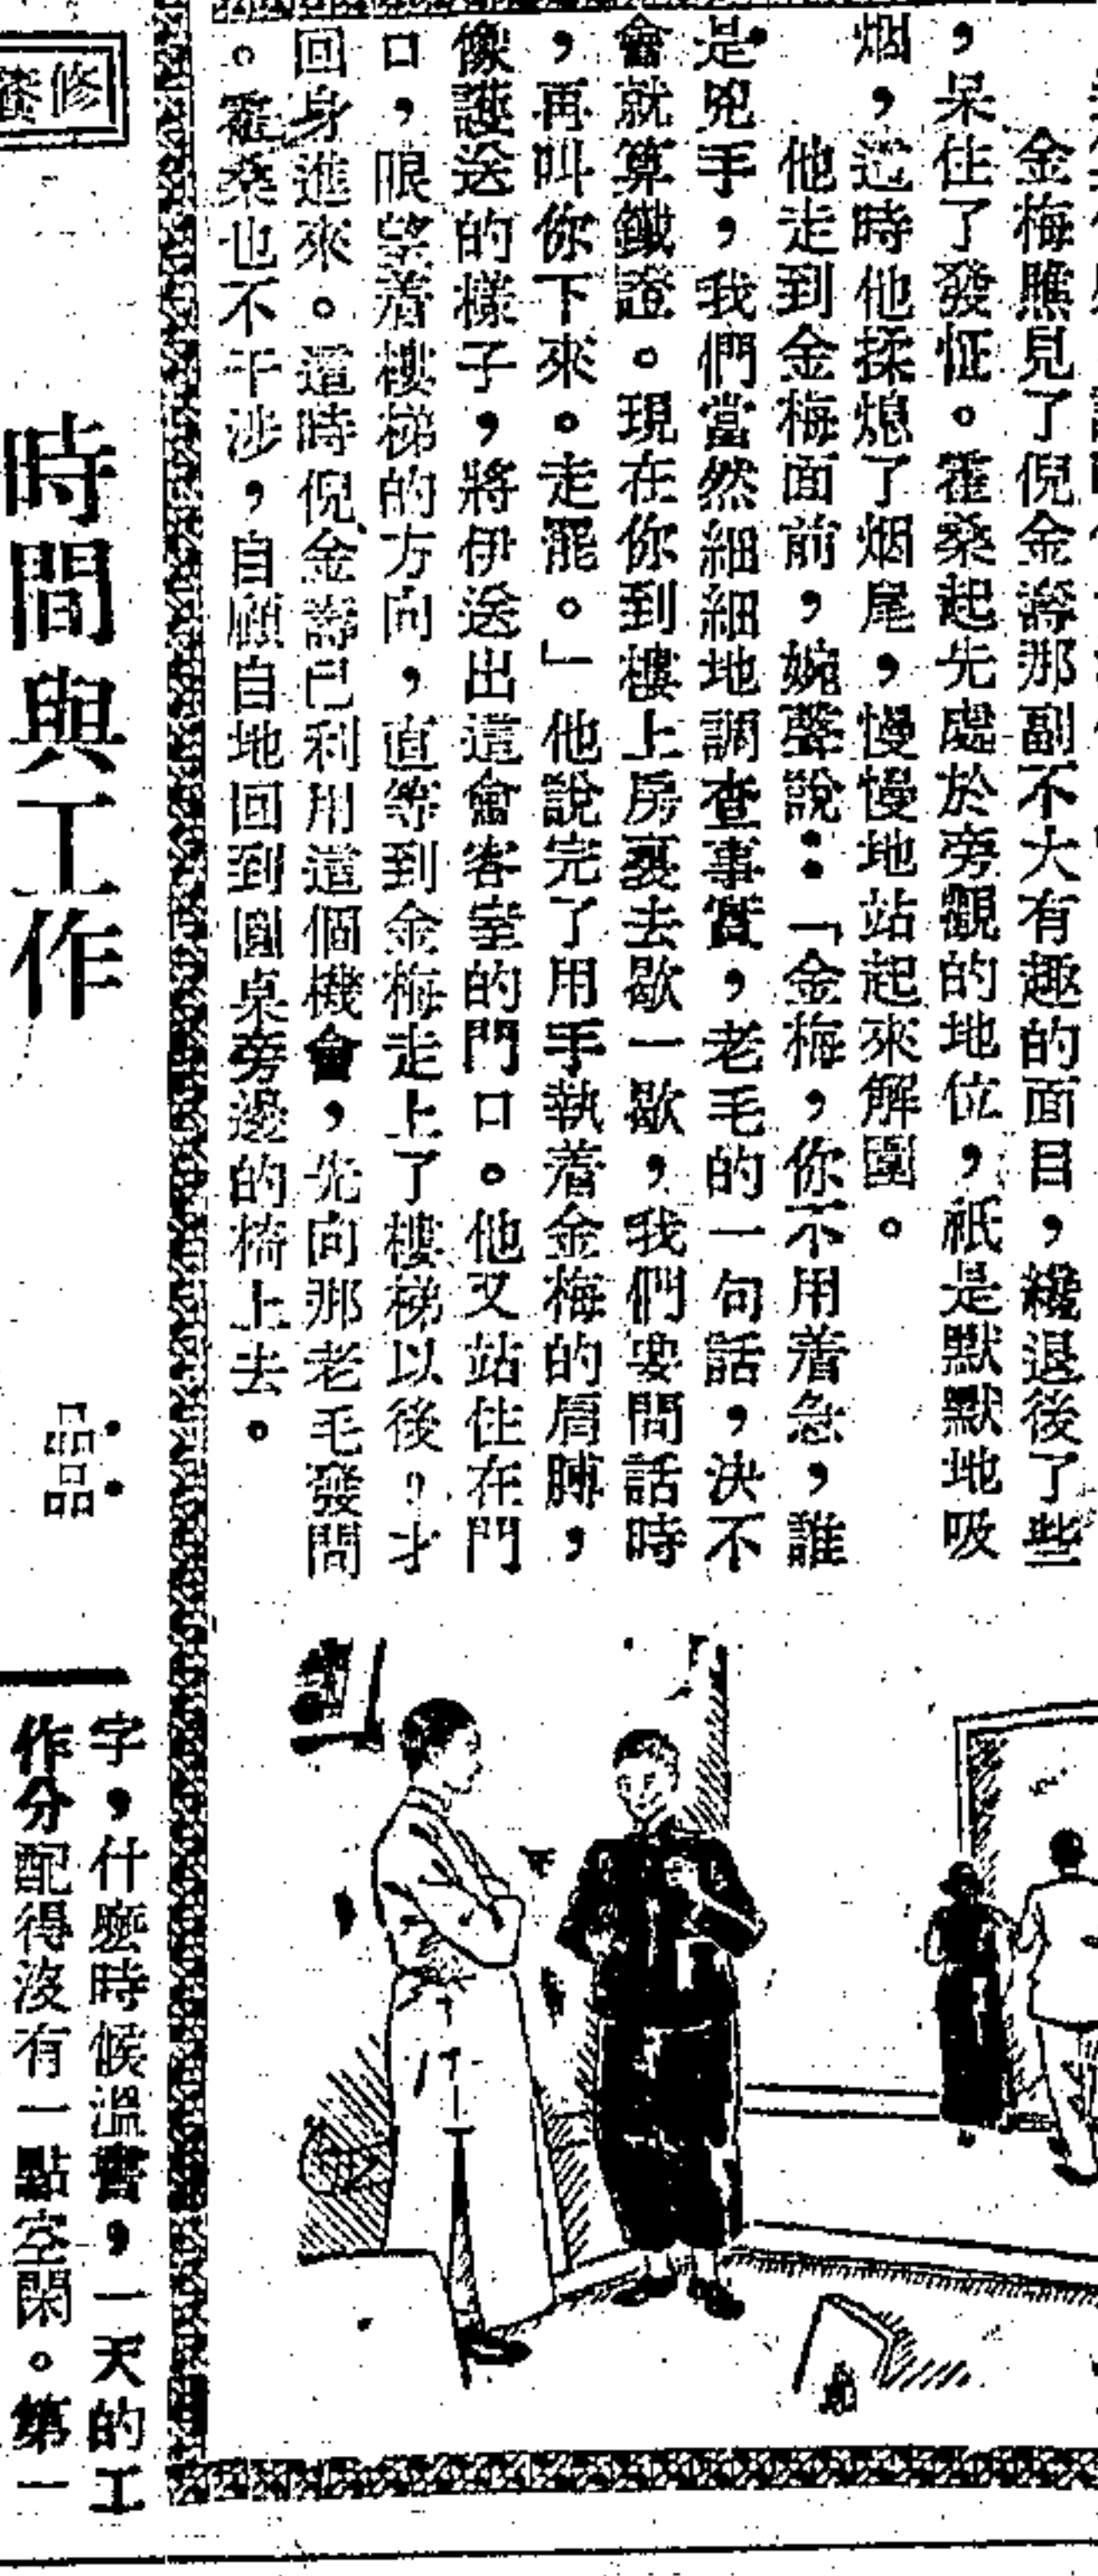 金梅瞧見了倪金壽那副不大有趣的面目，纔退後了些
，呆住了發怔。霍桑起先處於旁觀的地位，祇是默默地吸
烟，這時他揉熄了烟尾，慢慢地站起來解圍。
他走到金梅面前，婉聲說：「金梅，你不用着急，誰
是兇手，我們當然細細地調查事實，老毛的一句話，決不
會就算鐵證。現在你到樓上房裏去歇一歇，我們要問話時
，再叫你下來。走罷。」他說完了用手執着金梅的肩膊，
像護送的樣子，將伊送出這會客室的門口。他又站住在門
口，眼望着樓梯的方向，直等到金梅走上了樓梯以後，才
回身進來。這時倪金壽已利用這個機會，先向那老毛發問
。霍桑也不干涉，自顧自地回到圓桌旁邊的椅上去。
修養
時間與工作
品品
字，什麼時候溫書，一天的工
作分配得沒有一點空閑。第一